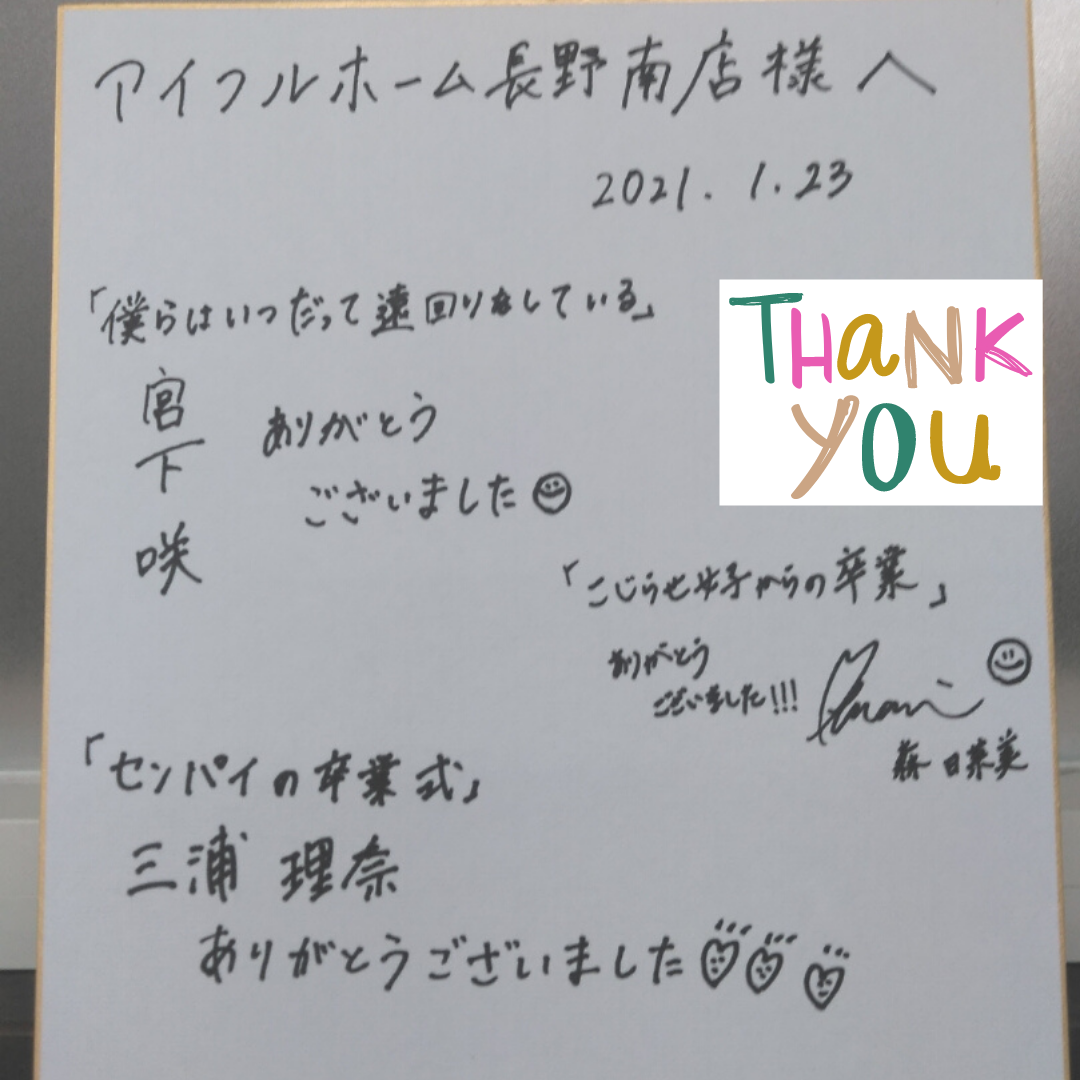 アイフルホーム長野南店様へ
2021.1.23
「僕らはいつだって遠回りをしている」
宮下咲
ありがとう
ございました
THANK
YOU
「こじらせ女子からの卒業」
ありがとう
ございました!!!
森 日菜美
「センパイの卒業式」
三浦 理奈
ありがとうございました